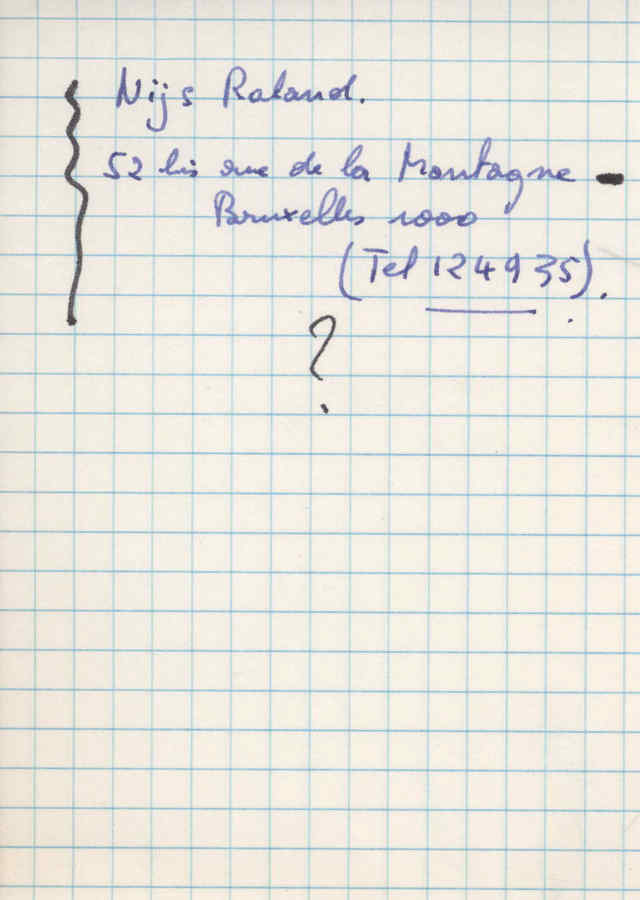 Nijs Roland.
52 bis rue de la Montagne -
Bruxelles 1000
(Tel 124935).
?